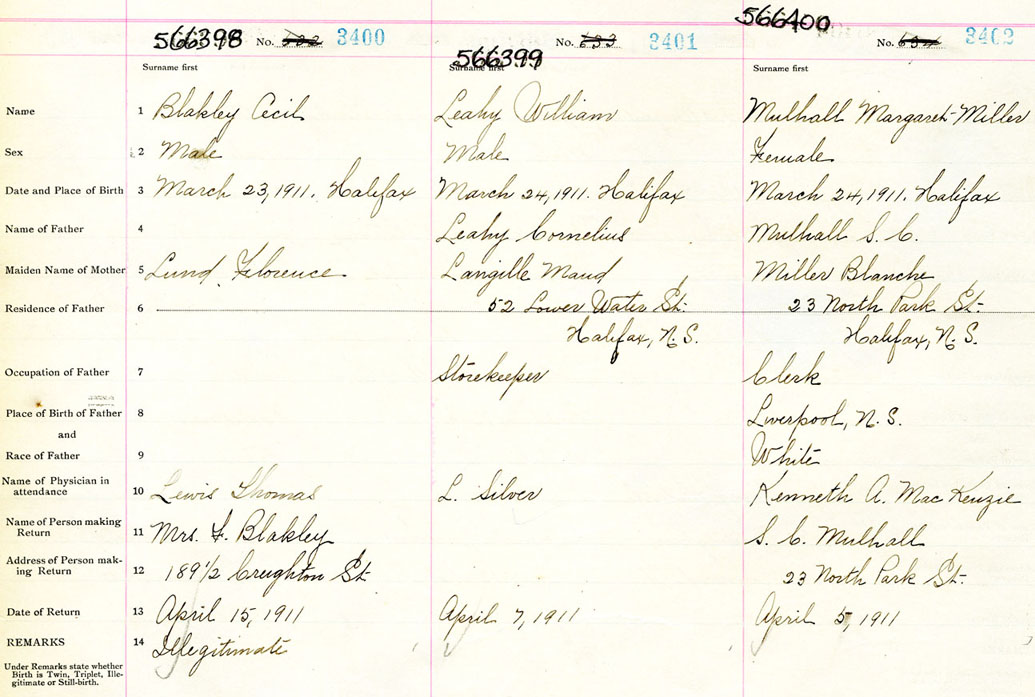 566398 No. 3400
566399 No. 633 3401
566400 No. 3402
Surname first Surname first Surname first
Name 1 Blakley Cecil Leahy William Mulhall Margaret-Miller
Sex 2 Male Male Female
Date and Place of Birth 3 March 23, 1911. Halifax March 24, 1911. Halifax March 24, 1911. Halifax
Name of Father 4 Leahy Cornelius Mulhall S. C.
Maiden Name of Mother 5 Lund Florence Langille Maud Miller Blanche
Residence of Father 6 52 Lower Water St. 23 North Park St.
Halifax, N.S. Halifax, N.S.
Occupation of Father 7 Storekeeper Clerk
Place of Birth of Father 8 Liverpool, N.S.
and
Race of Father 9 White
Name of Physician in
attendance 10 Lewis Thomas L. Silver Kenneth A. MacKenzie
Name of Person making
Return 11 Mrs. F. Blakley S. C. Mulhall
Address of Person mak-
ing Return 12 189 1/2 Creughton St. 23 North Park St.
Date of Return 13 April 15, 1911 April 7, 1911 April 5, 1911
REMARKS 14 Illegitimate
Under Remarks state whether
Birth is Twin, Triplet, Ille-
gitimate or Still-birth.